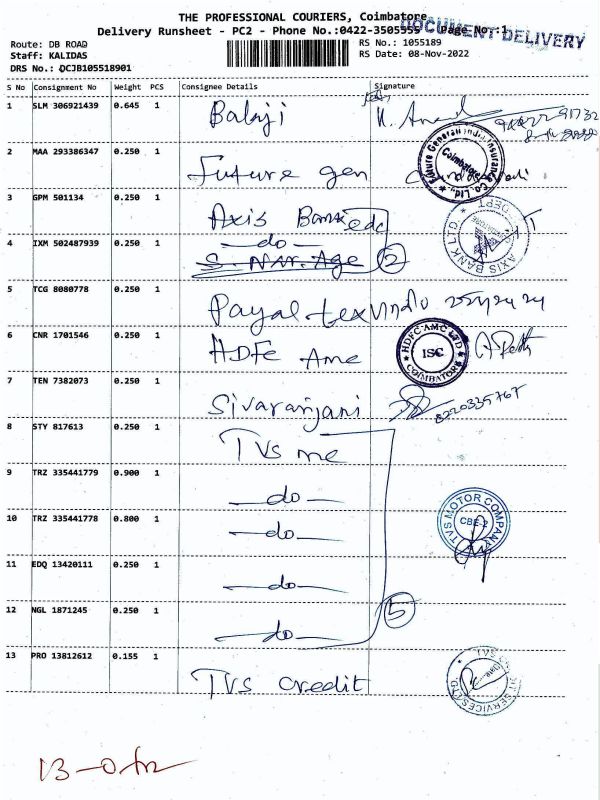 THE PROFESSIONAL COURIERS, Coimbatore
DOCUMENT DELIVERY
Delivery Runsheet - PC2 - Phone No.:0422-3505555 Page No :1
Route: DB ROAD
RS No.: 1055189
Staff: KALIDAS
RS Date: 08-Nov-2022
DRS No.: DCJB105518901
S No Consignment No Weight PCS Consignee Details Signature
1 SLM 306921439 0.645 1 Balaji
2 MAA 293386347 0.250 1 Future gen
Future Generali India Insurance Co. Ltd., Coimbatore
3 GPM 501134 0.250 1 Axis Bank edc
AXIS BANK LTD. DEPT
4 IXM 502487939 0.250 1 do 2
5 TCG 8080778 0.250 1 Payal tex
6 CNR 1701546 0.250 1 HDFC Ame
HDFC AMC LTD ISC COIMBATORE
7 TEN 7382073 0.250 1 Sivaranjani 8220335767
8 STY 817613 0.250 1 TVS me
9 TRZ 335441779 0.900 1 do
10 TRZ 335441778 0.800 1 do
TVS MOTOR COMPANY CBE-2
11 EDQ 13420111 0.250 1 do
12 NGL 1871245 0.250 1 do 5
13 PRO 13812612 0.155 1 TVS credit
TVS CREDIT SERVICES LTD